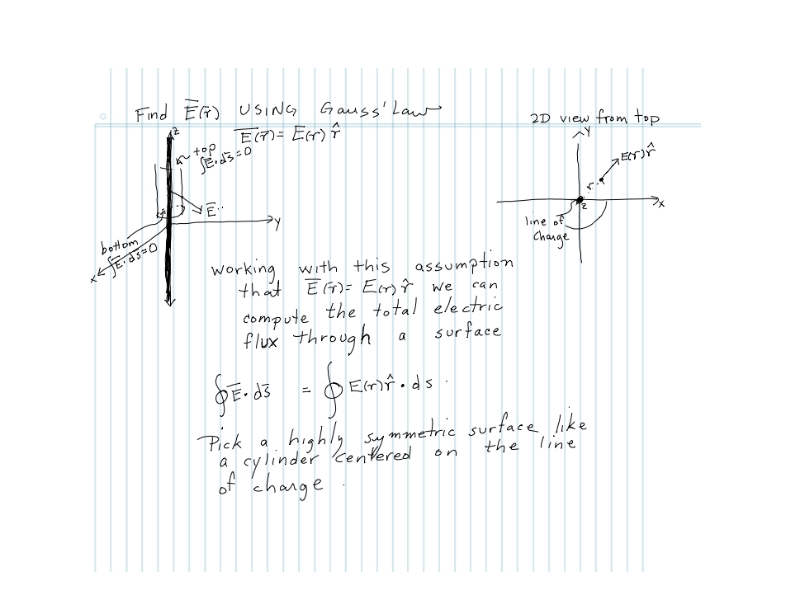 Find E̅(r̅) USING Gauss' Law
E̅(r̅) = E(r) r̂
2D view from top
z
top
∫E̅·ds̅=0
E̅
y
bottom
∫E̅·ds̅=0
x
y
E(r) r̂
r
z
x
line of
charge
working with this assumption
that E̅(r̅) = E(r) r̂ we can
compute the total electric
flux through a surface
∮E̅·ds̅ = ∮E(r) r̂ · ds
Pick a highly symmetric surface like
a cylinder centered on the line
of charge.